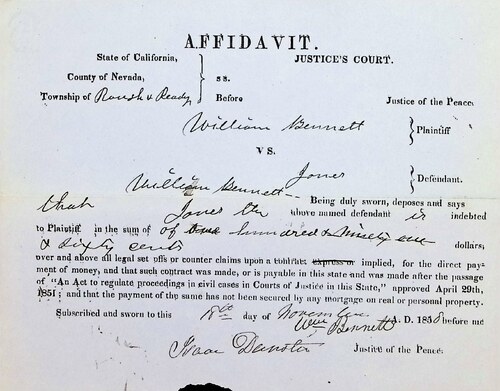 AFFIDAVIT.
State of California,
County of Nevada,
Township of Rough & Ready
ss.
Before
JUSTICE'S COURT.
Justice of the Peace.
William Bennett Plaintiff
VS.
Jones Defendant.
William Bennett Being duly sworn, deposes and says
that Jones the above named defendant is indebted
to Plaintiff in the sum of of hundred & Ninety one
& Sixty cents dollars,
over and above all legal set offs or counter claims upon a contract express or implied, for the direct pay-
ment of money, and that such contract was made, or is payable in this state and was made after the passage
of "An Act to regulate proceedings in civil cases in Courts of Justice in this State," approved April 29th,
1851; and that the payment of the same has not been secured by any mortgage on real or personal property.
Subscribed and sworn to this day of November A. D. 1858 before me
Wm Bennett
Isaac Justice of the Peace.